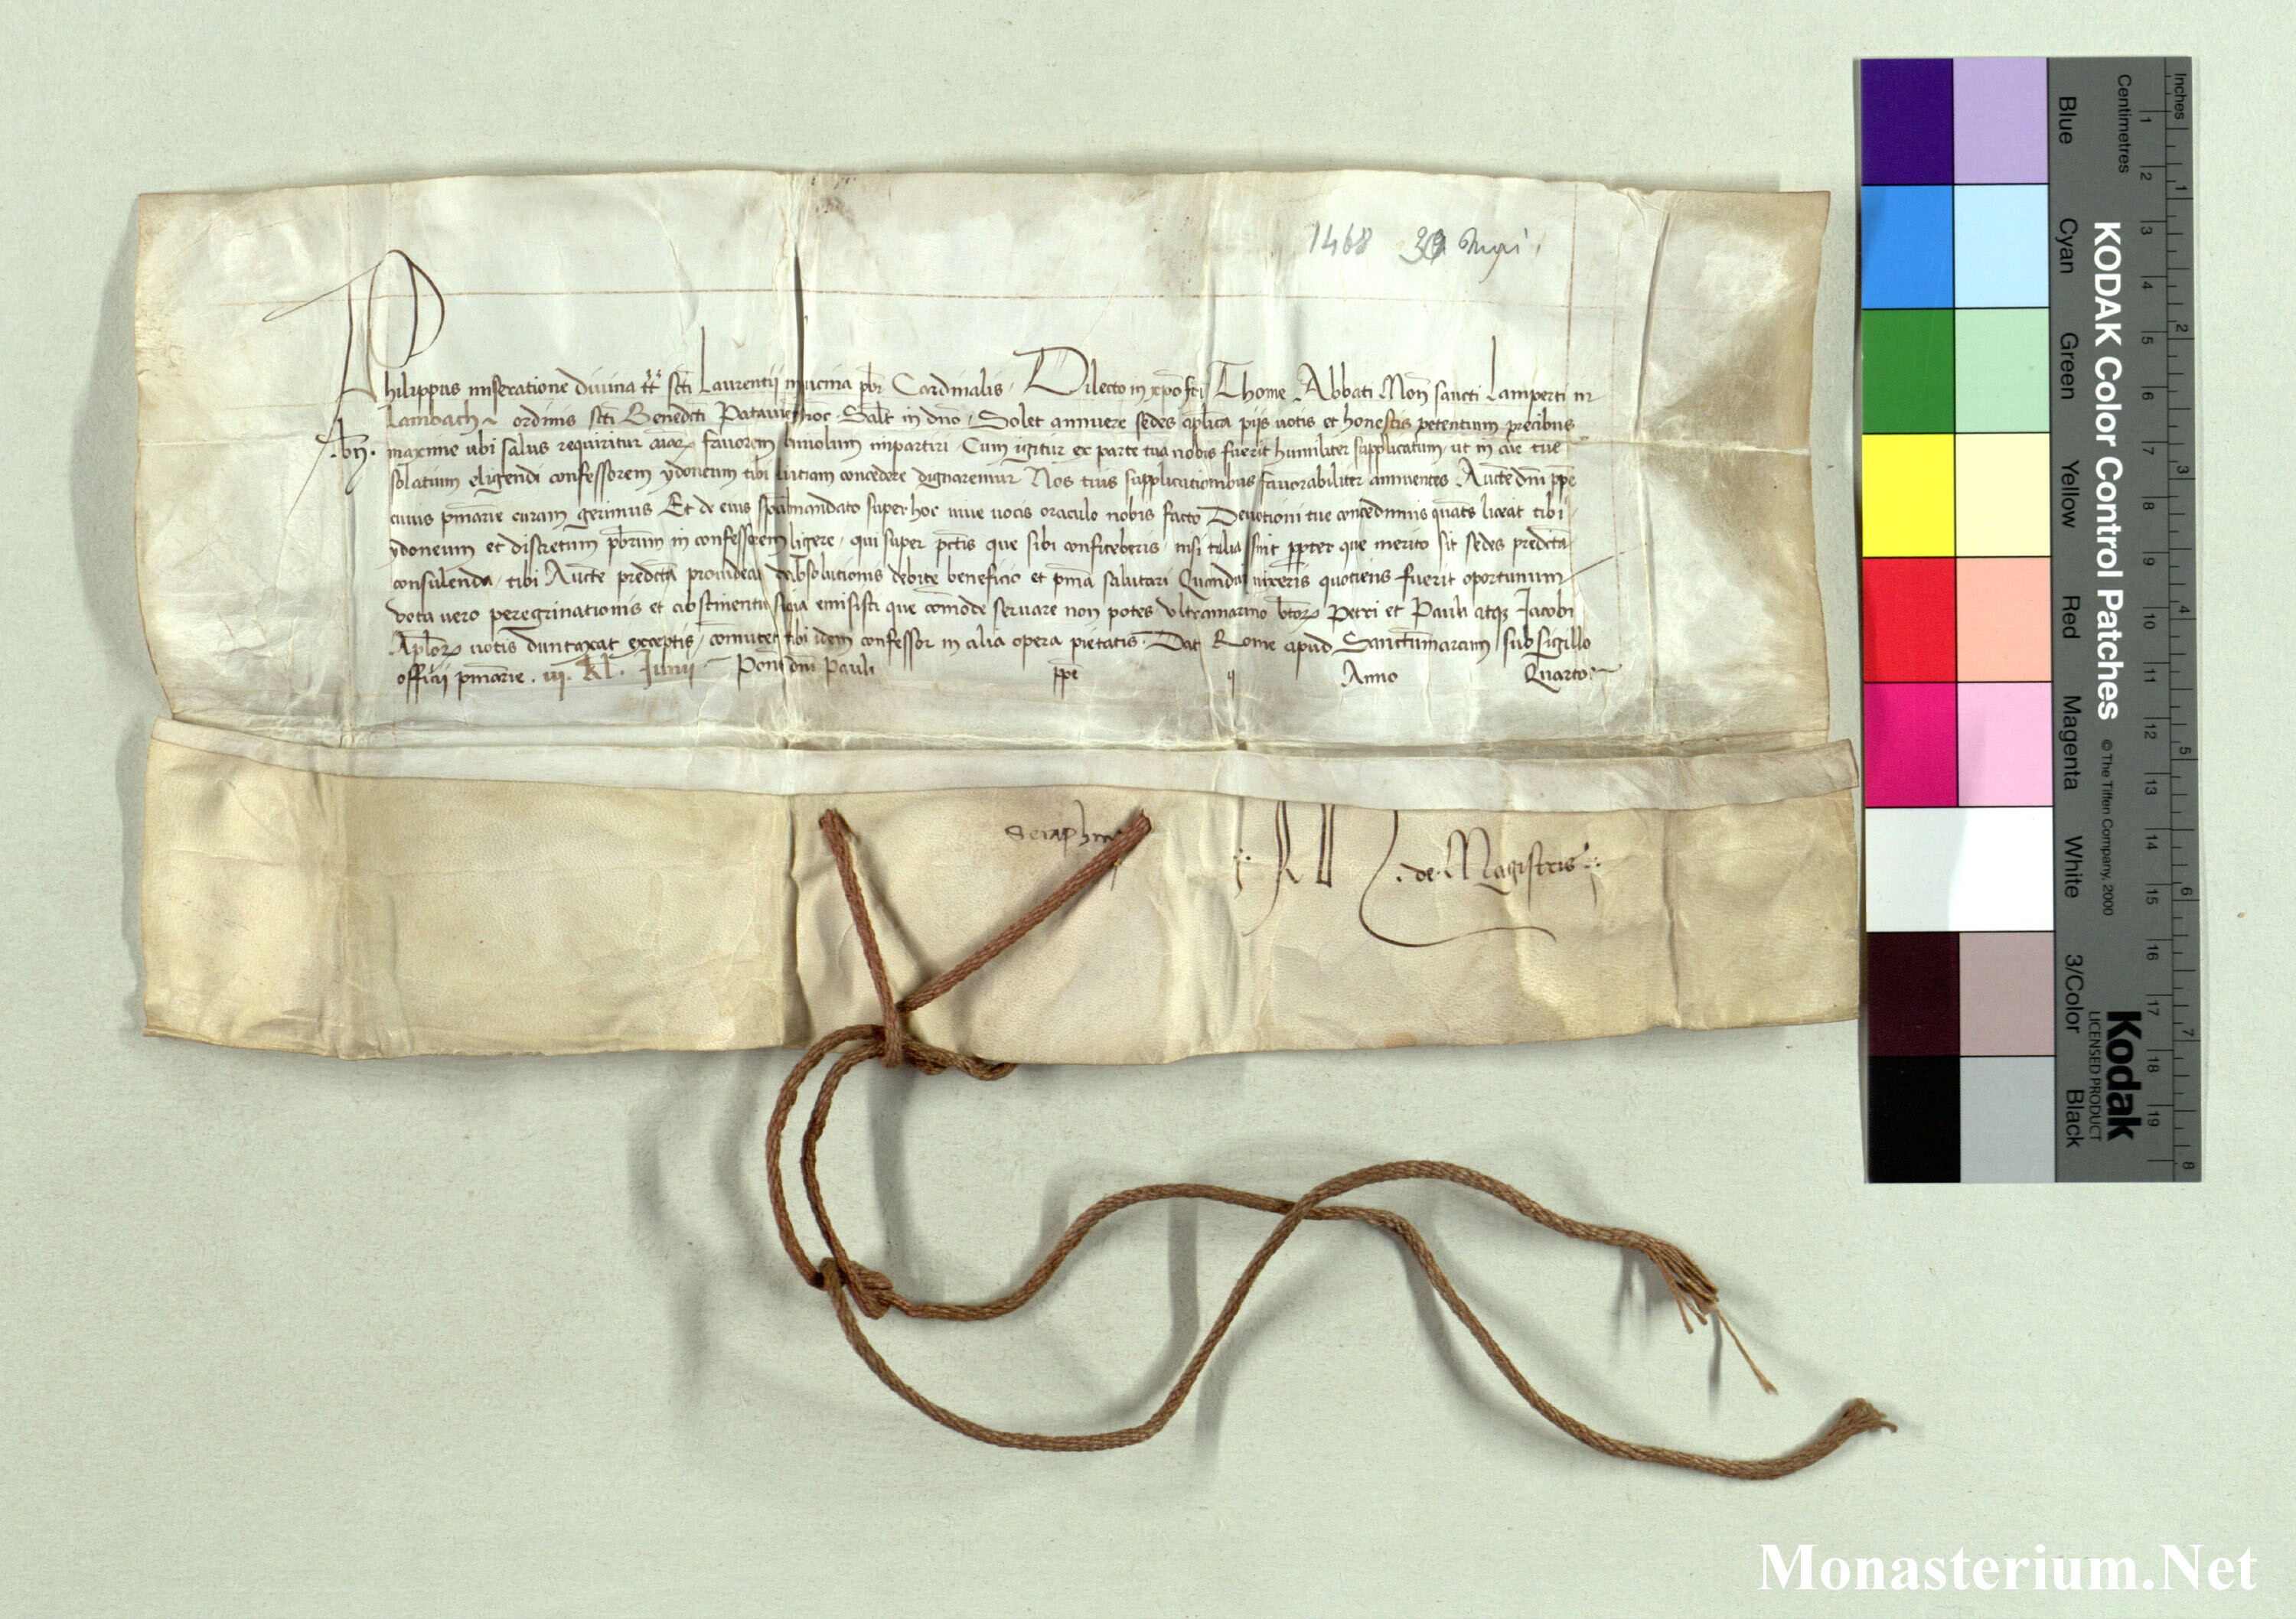 1468 30 Mai
Philippus miseratione divina tt̄ sc̄ti Laurentii in lucina pb̄r Cardinalis. Dilecto in xp̄o Thome Abbati Mon̄ sancti Lamperti in
Lambach ordinis sc̄ti Benedc̄ti Patavien̄ dioc̄ Sal̄t in dn̄o. Solet annuere sedes ap̄lica pijs votis et honestis petentium precibus
.bn̄. maxime ubi salus requiritur aīarꝝ favorem benivolum impartiri. Cum igitur ex parte tua nobis fuerit humiliter supplicatum ut in aīe tue
solatium eligendi confessorem ydoneum tibi licentiam concedere dignaremur Nos tuis supplicationibus favorabiliter annuentes Aucte dn̄i pp̄e
cuius pn̄iarie curam gerimus Et de eius sp̄ali mandato super hoc vive vocis oraculo nobis facto Devotioni tue concedimus quāts liceat tibi
ydoneum et discretum pb̄rum in confessorem eligere, qui super pctīs que sibi confiteberis, nisi talia sint ꝓpter que merito sit sedes predcta
consulenda, tibi Aucte predcta provideat de absolutionis debite beneficio et pn̄ia salutari Quotiens fuerit oportunum
Vota vero peregrinationis et abstinentie siqua emisisti que com̄ode servare non potes Ultramarino bt̄orꝝ Petri et Pauli atqꝫ Jacobi
Apl̄orꝝ votis duntaxat exceptis, com̄utet tibi idem confessor in alia opera pietatis. Dat̄ Rome apud Sanctum marcum sub sigillo
officii pn̄iarie. iii. kl̄. Junii Pont̄ dn̄i Pauli pp̄e ij Anno Quarto
Seraphin
de Magistris
Inches
Centimetres
KODAK Color Control Patches
© The Tiffen Company, 2000
Kodak
LICENSED PRODUCT
Blue
Cyan
Green
Yellow
Red
Magenta
White
3/Color
Black
1 2 3 4 5 6 7 8 9 10 11 12 13 14 15 16 17 18 19
1 2 3 4 5 6 7 8
Monasterium.Net